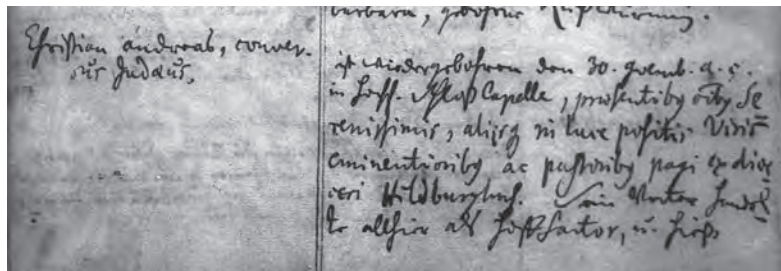 barbara, gebohrne
Christian andreas, conver-
sus Judaus,
ist wiedergebohren den 30. 9emb. a. c.
in Hoff. Schloß Capelle, præsentibq octo Se
renissimis, alijsq in luce positis Viris
eminentioribq ac pastoribq pagi ex dioe
cesi Hildburghus. Sein Vater handel
te allhier als Hoff factor, u. hieß